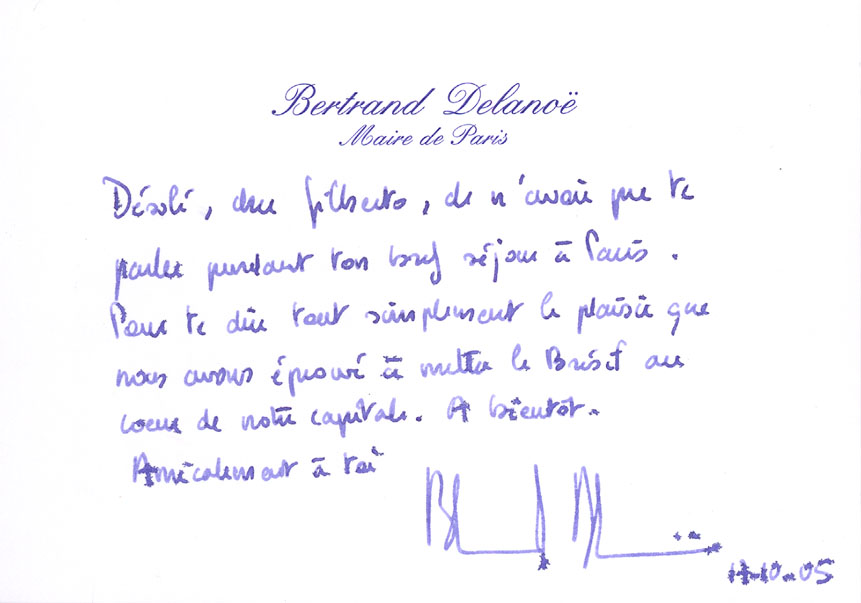 Bertrand Delanoë
Maire de Paris
Désolé, cher Gilberto, de n'avoir pu te
parler pendant ton bref séjour à Paris.
Pour te dire tout simplement le plaisir que
nous avons éprouvé à mettre le Brésil au
coeur de notre capitale. A bientôt.
Amicalement à toi